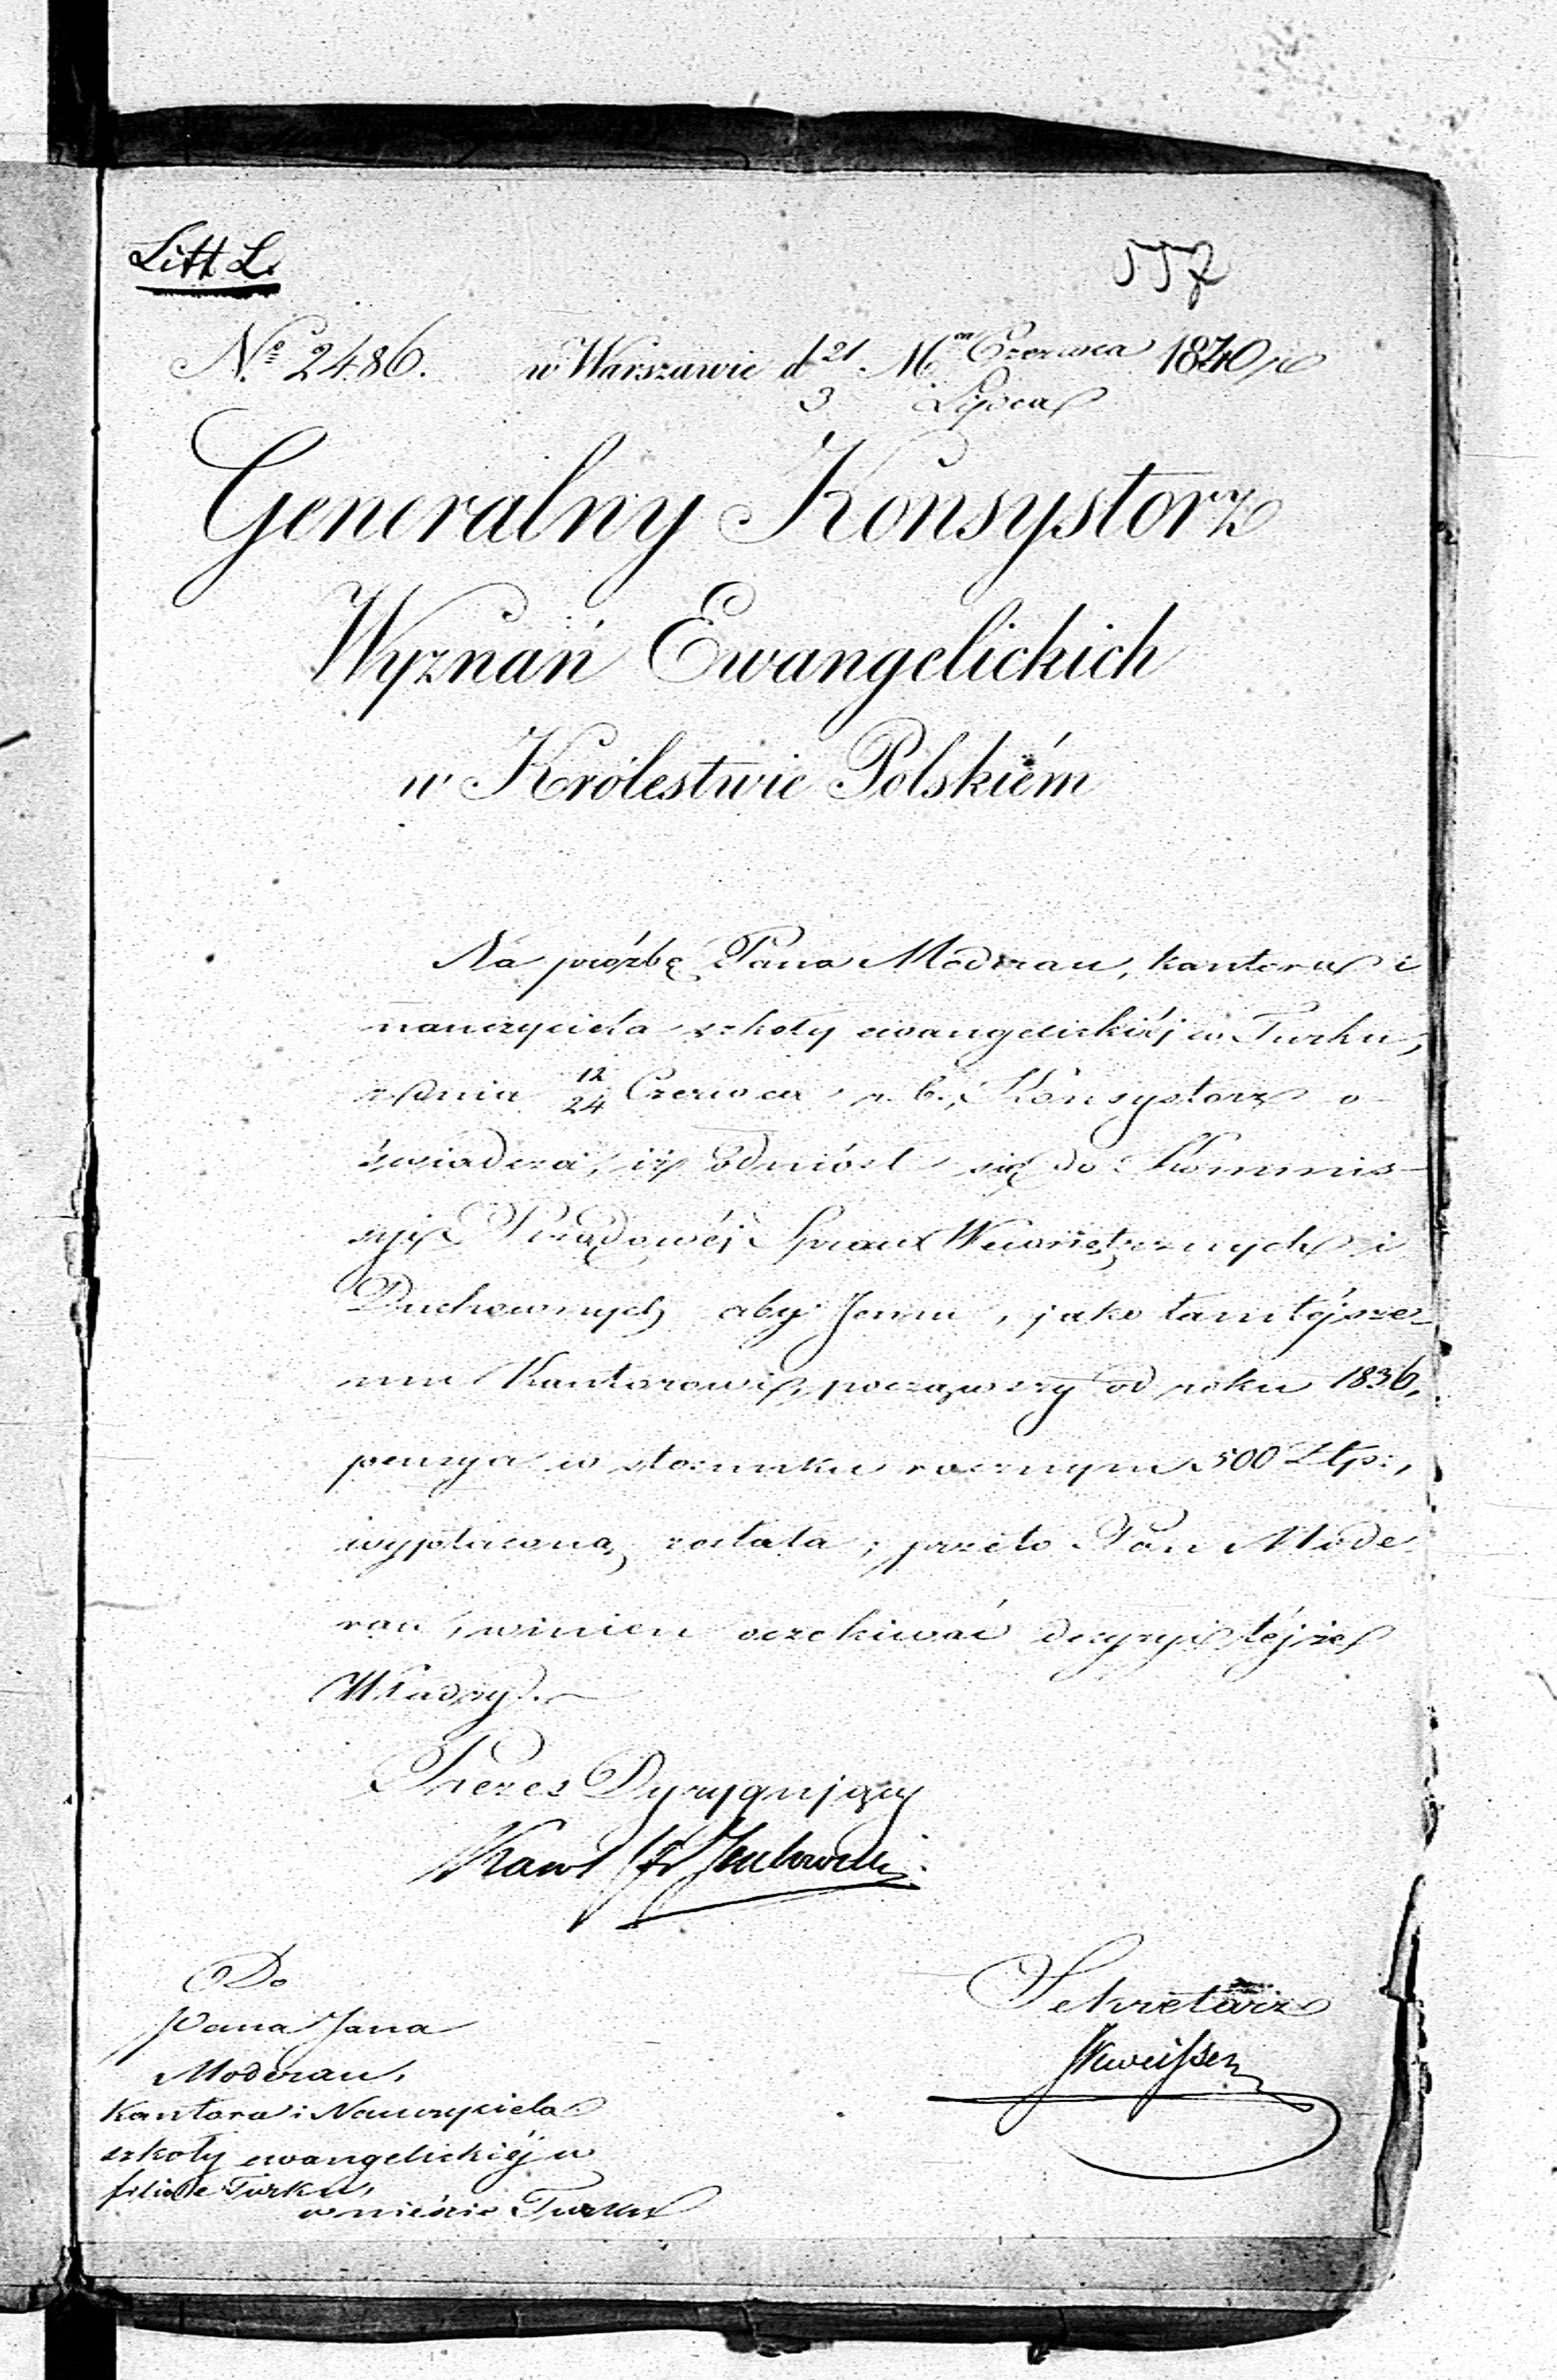 Litt L.
557
No 2486. w Warszawie d 21 Mca Czerwca 1840 r
3 Lipca
Generalny Konsystorz
Wyznań Ewangelickich
w Królestwie Polskiém
Na prośbę Pana Moderau, kantora i
nauczyciela szkoły ewangelickiéj w Turku,
z dnia 12/24 Czerwca r. b., Konsystorz o-
świadcza, iż odniósł się do Kommis-
syi Rządowéj Spraw Wewnętrznych i
Duchownych aby Jemu, jako tamtéjsze-
mu Kantorowi, począwszy od roku 1836,
pensya w stosunku rocznym 500 Złp:,
wypłaconą została; przeto Pan Mode-
rau, winien oczekiwać decyzyi téjże
Władzy.
Prezes Dyrygujący
Sekretarz
Do
Pana Jana
Moderau,
Kantora i Nauczyciela
szkoły ewangelickiéj w
filiale Turku,
w mieście Turku